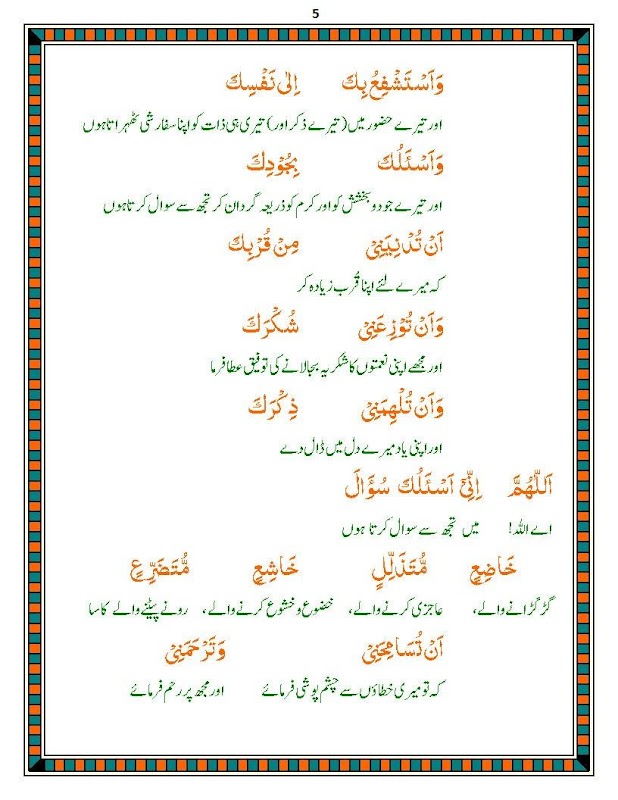 5
وَاَسْتَشْفِعُ بِكَ اِلٰى نَفْسِكَ
اور تیرے حضور میں (تیرے ذکر اور) تیری ہی ذات کو اپنا سفارشی ٹھہراتا ہوں
وَاَسْئَلُكَ بِجُوْدِكَ
اور تیرے جود و بخشش کو اور کرم کو ذریعہ گردان کر تجھ سے سوال کرتا ہوں
اَنْ تُدْنِيَنِیْ مِنْ قُرْبِكَ
کہ میرے لئے اپنا قُرب زیادہ کر
وَاَنْ تُوْزِعَنِیْ شُكْرَكَ
اور مجھے اپنی نعمتوں کا شکریہ بجا لانے کی توفیق عطا فرما
وَاَنْ تُلْهِمَنِیْ ذِكْرَكَ
اور اپنی یاد میرے دل میں ڈال دے
اَللّٰهُمَّ اِنِّیْ اَسْئَلُكَ سُؤَالَ
اے اللہ! میں تجھ سے سوال کرتا ہوں
خَاضِعٍ مُّتَذَلِّلٍ خَاشِعٍ مُّتَضَرِّعٍ
گڑگڑانے والے، عاجزی کرنے والے، خضوع و خشوع کرنے والے، رونے پیٹنے والے کا سا
اَنْ تُسَامِحَنِیْ وَتَرْحَمَنِیْ
کہ تو میری خطاؤں سے چشم پوشی فرمائے اور مجھ پر رحم فرمائے